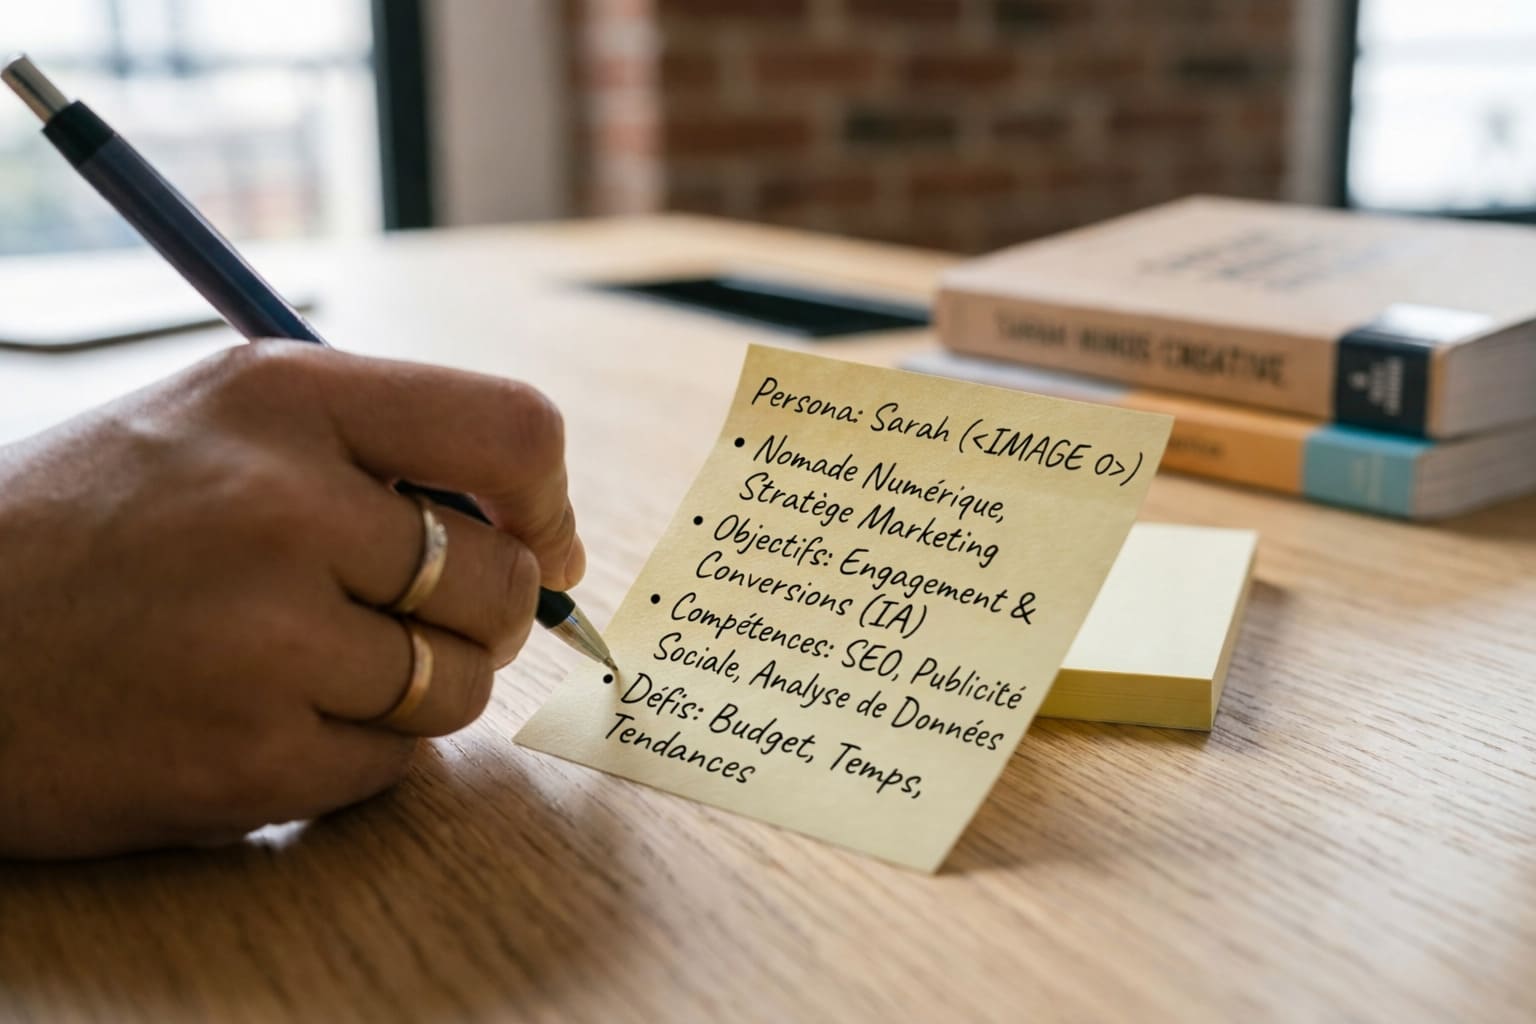 Persona: Sarah (<IMAGE 0>)
• Nomade Numérique,
Stratège Marketing
• Objectifs: Engagement &
Conversions (IA)
• Compétences: SEO, Publicité
Sociale, Analyse de Données
• Défis: Budget, Temps,
Tendances
CREATIVE